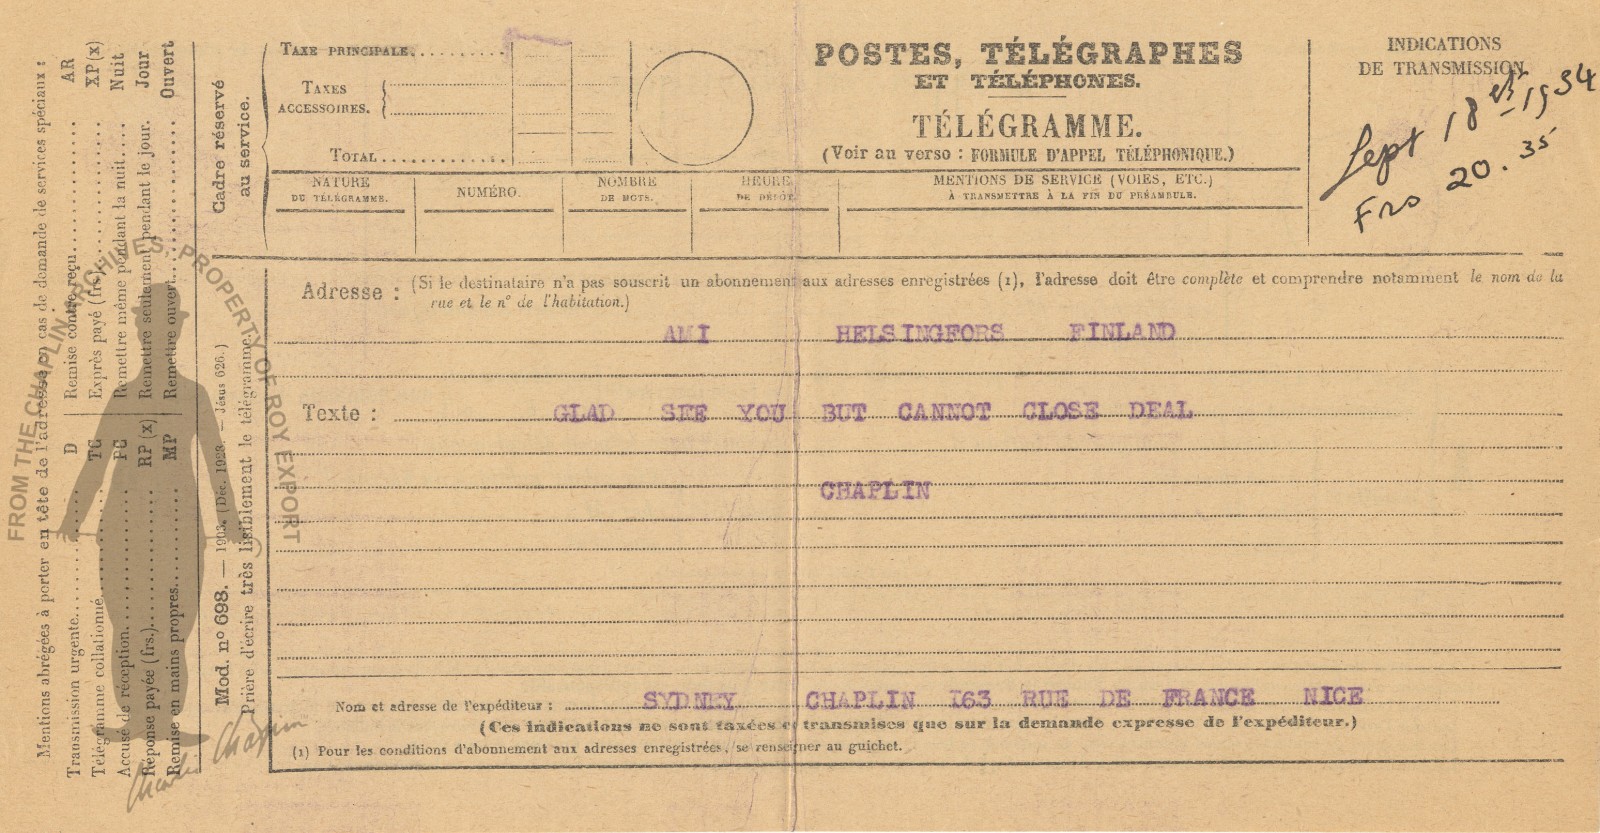 Mentions abrégées à porter en tête de l'adresse en cas de demande de services spéciaux :
D Remise contre reçu AR
Transmission urgente
TC Exprès payé (frs) XP (x)
Télégramme collationné
PC Remettre même pendant la nuit Nuit
Accusé de réception
RP (x) Remettre seulement pendant le jour. Jour
Réponse payée (frs.)
MP Remettre ouvert Ouvert
Remise en mains propres
Cadre réservé
au service.
Mod. nº 698. — 1903. (Déc. 1923. — Jésus 626.)
Prière d'écrire très lisiblement le télégramme.
TAXE PRINCIPALE
TAXES
ACCESSOIRES.
TOTAL
POSTES, TÉLÉGRAPHES
ET TÉLÉPHONES.
TÉLÉGRAMME.
(Voir au verso : FORMULE D'APPEL TÉLÉPHONIQUE.)
INDICATIONS
DE TRANSMISSION
Sept 18 1934
Frs 20.35
NATURE
DU TÉLÉGRAMME.
NUMÉRO.
NOMBRE
DE MOTS.
HEURE
DE DÉPÔT.
MENTIONS DE SERVICE (VOIES, ETC.)
À TRANSMETTRE À LA FIN DU PRÉAMBULE.
Adresse : (Si le destinataire n'a pas souscrit un abonnement aux adresses enregistrées (1), l'adresse doit être complète et comprendre notamment le nom de la
rue et le nº de l'habitation.)
AMI HELSINGFORS FINLAND
Texte : GLAD SEE YOU BUT CANNOT CLOSE DEAL
CHAPLIN
Nom et adresse de l'expéditeur : SYDNEY CHAPLIN I63 RUE DE FRANCE NICE
(Ces indications ne sont taxées et transmises que sur la demande expresse de l'expéditeur.)
(1) Pour les conditions d'abonnement aux adresses enregistrées, se renseigner au guichet.
FROM THE CHAPLIN ARCHIVES, PROPERTY OF ROY EXPORT
Charles Chaplin